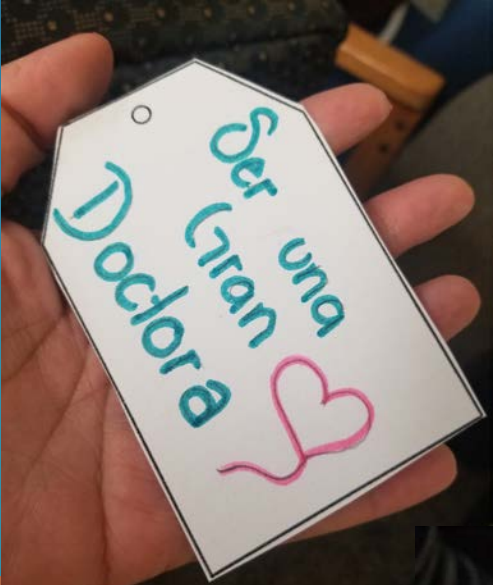 Ser una
Gran
Doctora